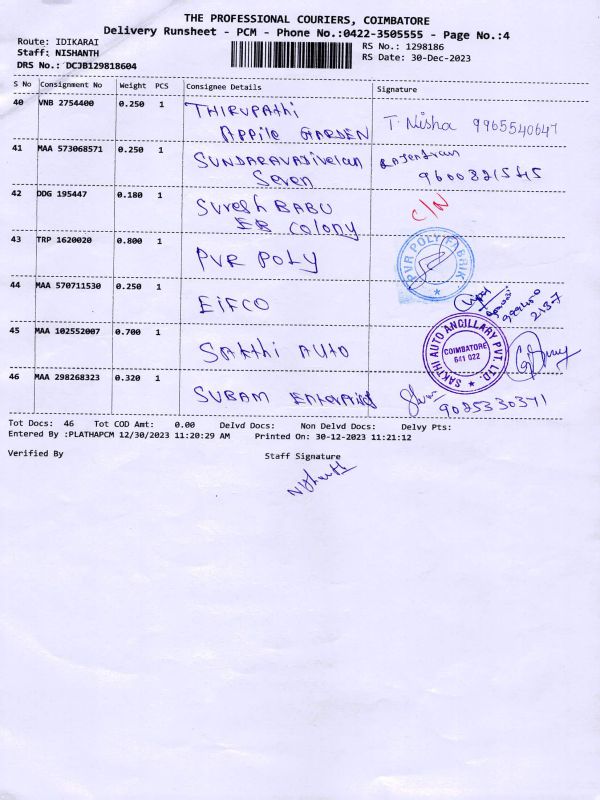 THE PROFESSIONAL COURIERS, COIMBATORE
Delivery Runsheet - PCM - Phone No.:0422-3505555 - Page No.:4
Route: IDIKARAI
RS No.: 1298186
Staff: NISHANTH
RS Date: 30-Dec-2023
DRS No.: DCJB129818604
S No Consignment No Weight PCS Consignee Details Signature
40 VNB 2754400 0.250 1 THIRUPAThi
APPlE GARDEN T. Nisha 9965540647
41 MAA 573068571 0.250 1 SUNDARAVADivelan Rajendran
Seven 9600821545
42 DDG 195447 0.180 1 SURESh BABU C/N
EB Colony
43 TRP 1620020 0.800 1 PVR POLY
PVR POLY FABRIK
44 MAA 570711530 0.250 1 EIFCO
45 MAA 102552007 0.700 1 SAKThi AUTO
SAKTHI AUTO ANCILLARY PVT. LTD.
COIMBATORE
641 022
46 MAA 298268323 0.320 1 SUBAM Enterprises 9025330371
Tot Docs: 46 Tot COD Amt: 0.00 Delvd Docs: Non Delvd Docs: Delvy Pts:
Entered By :PLATHAPCM 12/30/2023 11:20:29 AM Printed On: 30-12-2023 11:21:12
Verified By Staff Signature
Nishanth